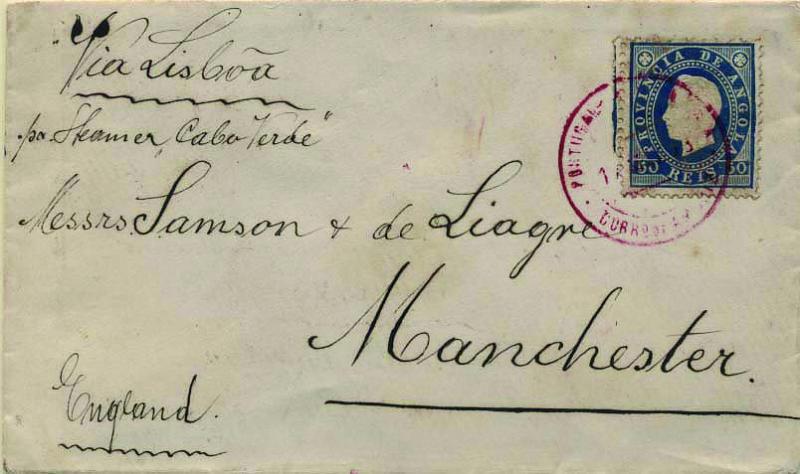 Via Lisbôa
per Steamer „Cabo Verde"
Messrs Samson & de Liagre
Manchester.
England.
PROVINCIA DE ANGOLA
50 REIS 50
PORTUGAL
CORREO